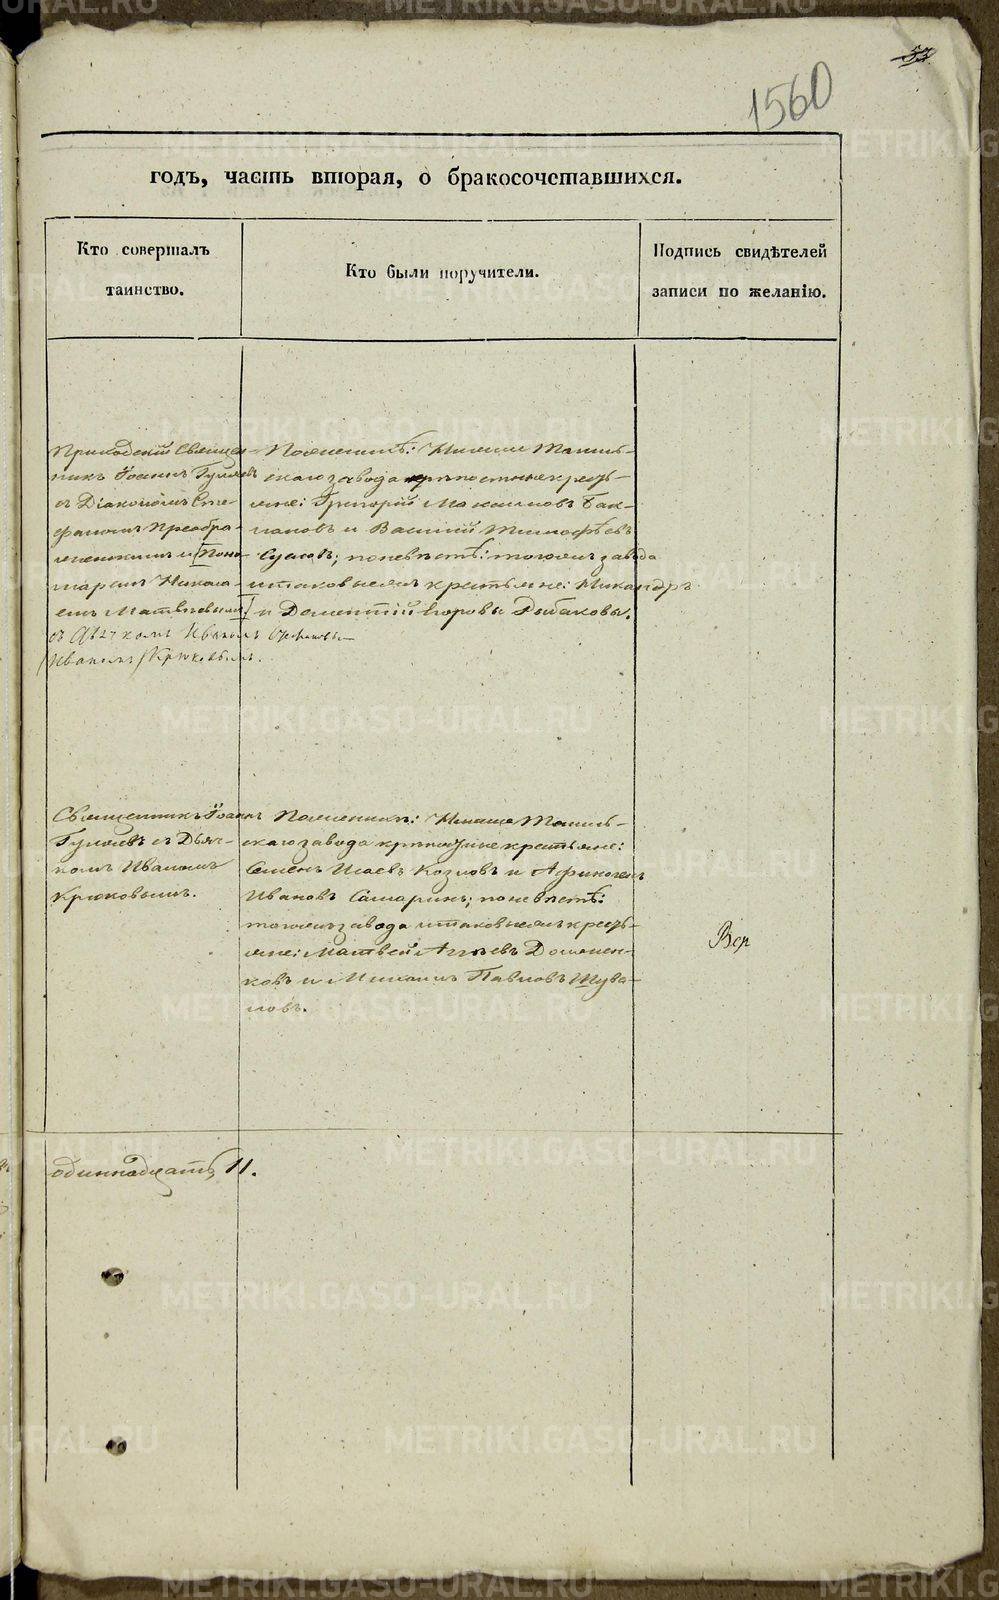 53
1560
годъ, часть вторая, о бракосочетавшихся.
Кто совершалъ
таинство.
Кто были поручители.
Подпись свидѣтелей
записи по желанію.
Приходскій Священ-
никъ Іоаннъ Гуляевъ
съ Діакономъ Сте-
фаномъ Преобра-
женскимъ и Поно-
маремъ Никола-
емъ Матвѣевымъ
съ Дьячкомъ Иваномъ
Иваномъ Крюковымъ.
По женихѣ: Нижне Тагиль-
скаго завода крѣпостные кресть-
яне: Григорій Максимовъ Бак-
лановъ и Василій Тимофѣевъ
по невѣстѣ: тогожъ завода
и таковые жъ крестьяне: Никандръ
и Дементій Егоровы Рыбаковы.
Священникъ Іоаннъ
Гуляевъ съ Дьяч-
комъ Иваномъ
Крюковымъ.
По женихѣ: Нижне Тагиль-
скаго завода крѣпостные крестьяне:
Семенъ Исаевъ Козловъ и
Ивановъ Самаринъ; по невѣстѣ:
тогожъ завода и таковые жъ кресть-
яне: Матвей
и Михаилъ Павловъ Шува-
ловъ.
Вер
одиннадцать 11.
METRIKI.GASO-URAL.RU